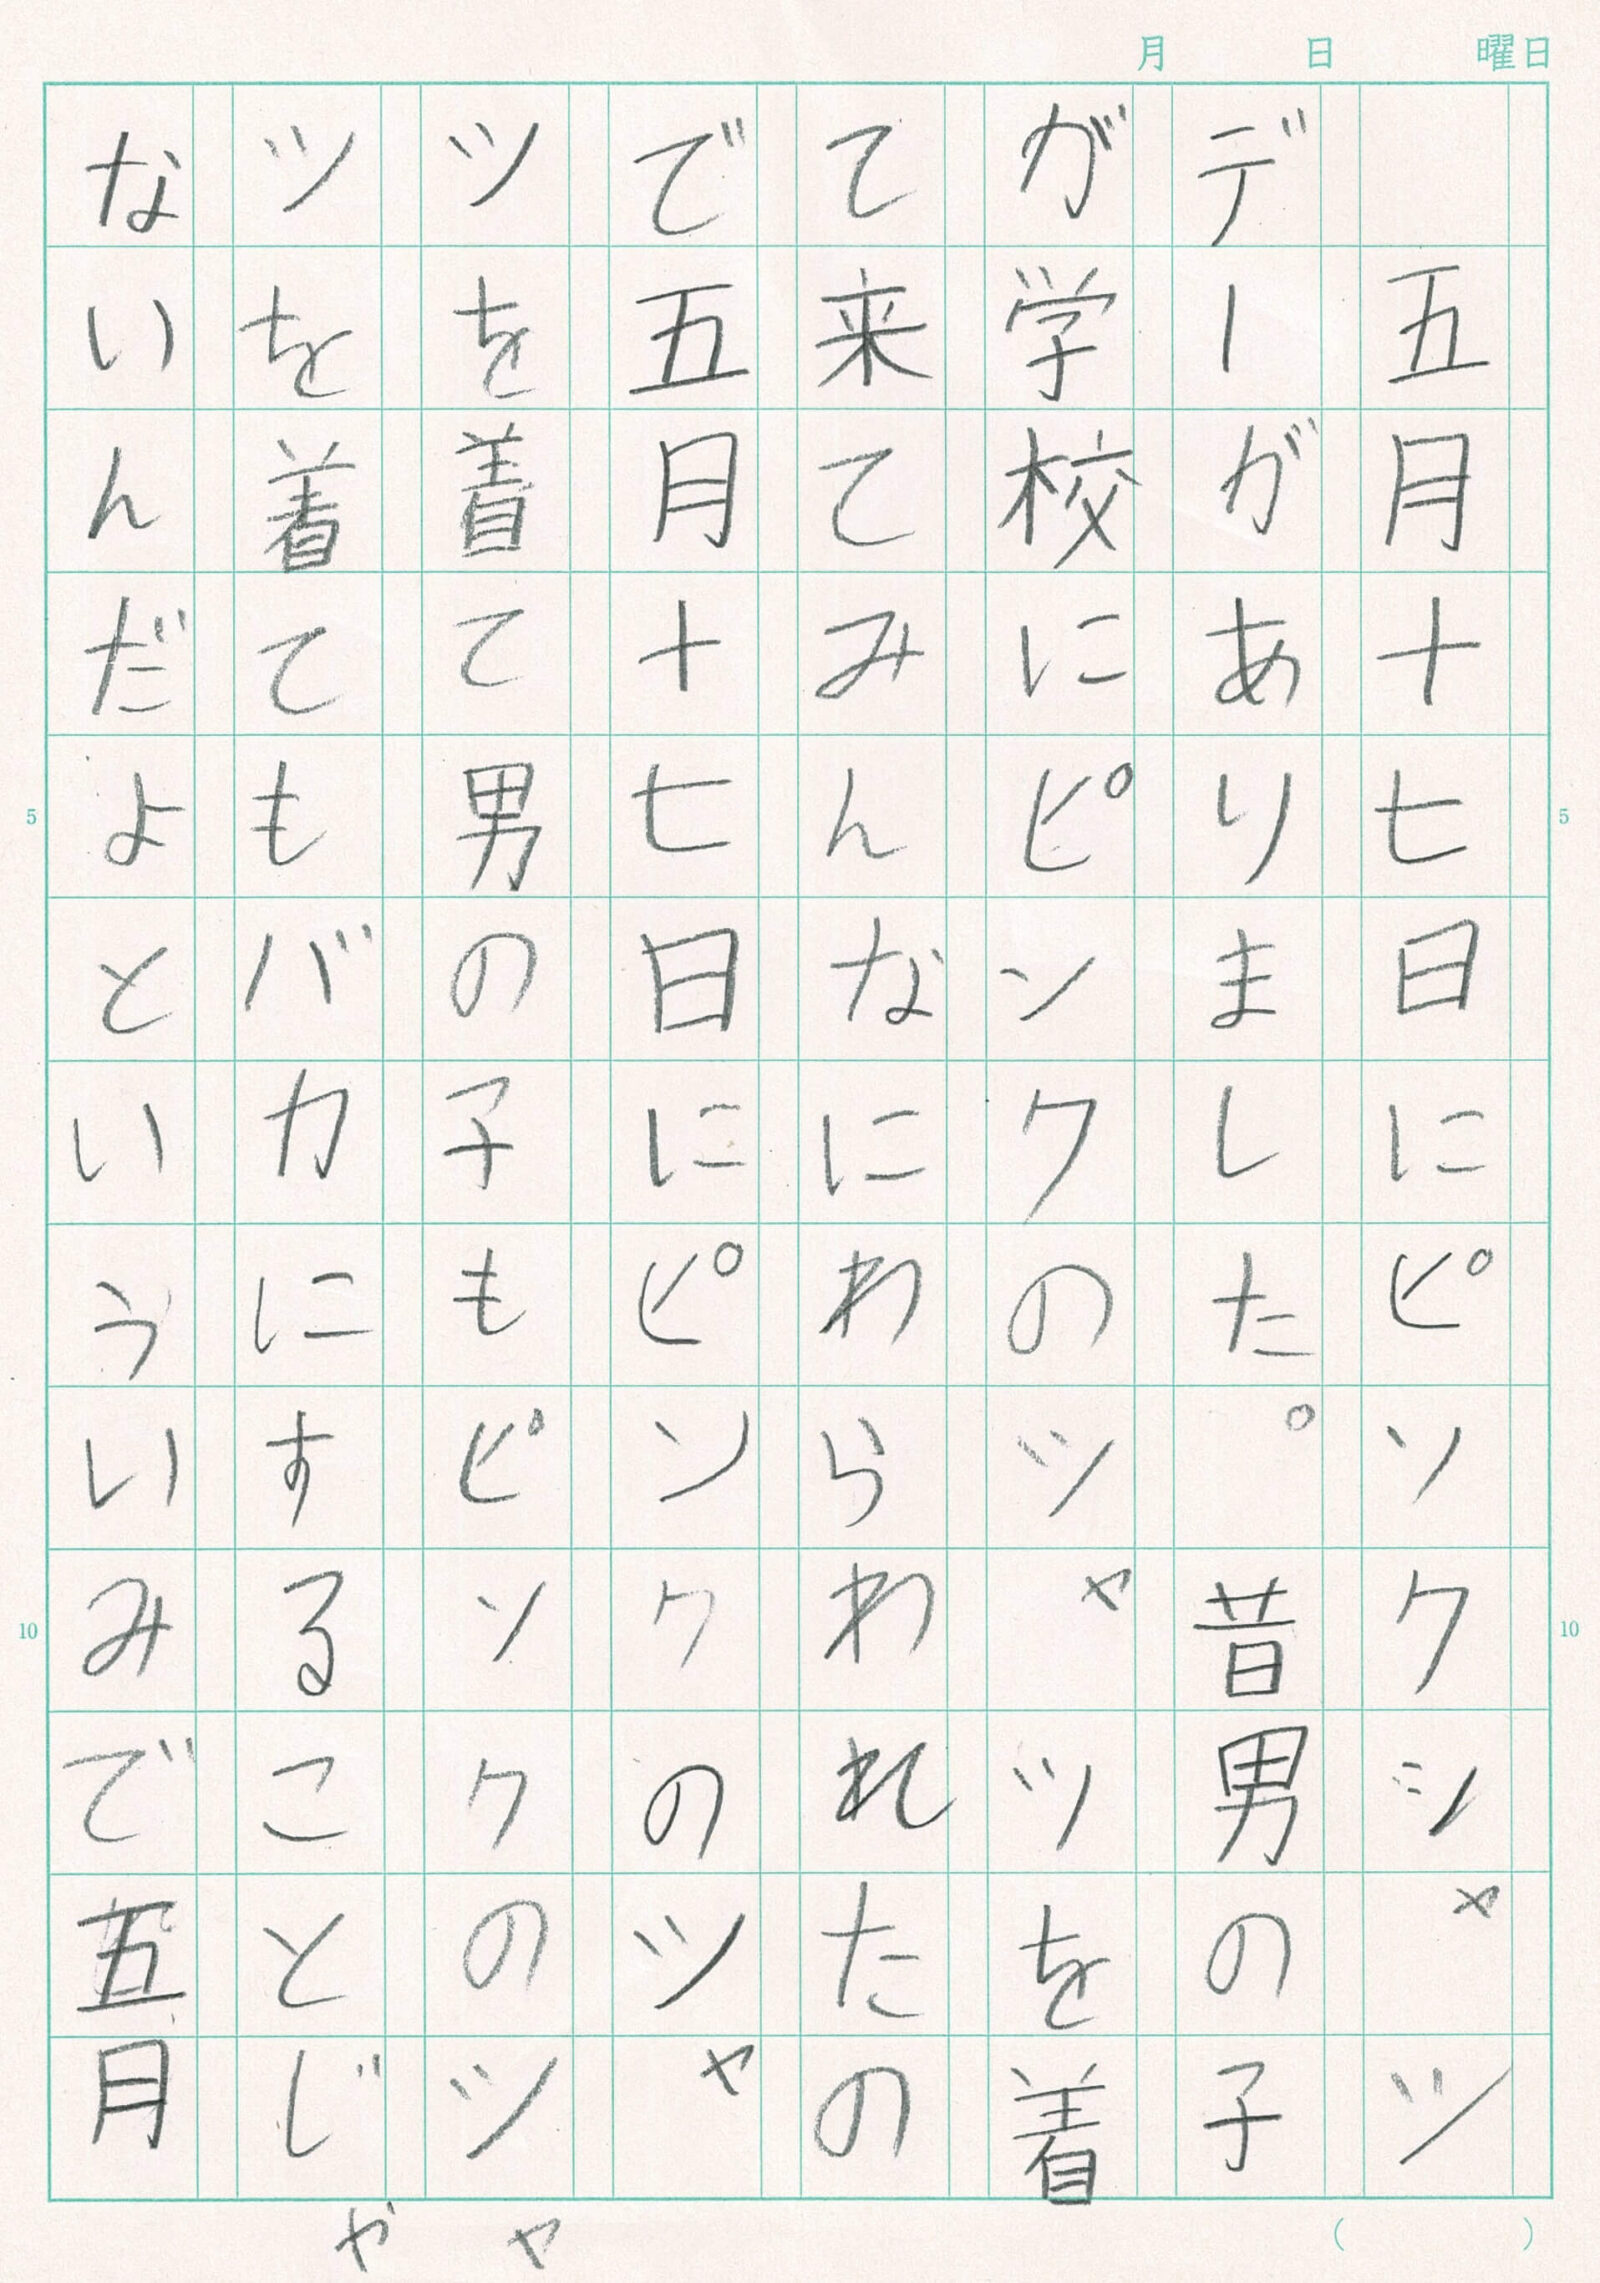 月 日 曜日
五月十七日にピンクシャツ
デーがありました。昔男の子
が学校にピンクのツャツを着
て来てみんなにわらわれたの
で五月十七日にピンクのツャ
ツを着て男の子もピンクのツャ
ツを着てもバカにすることじゃ
ないんだよといういみで五月
5
10
5
10
( )